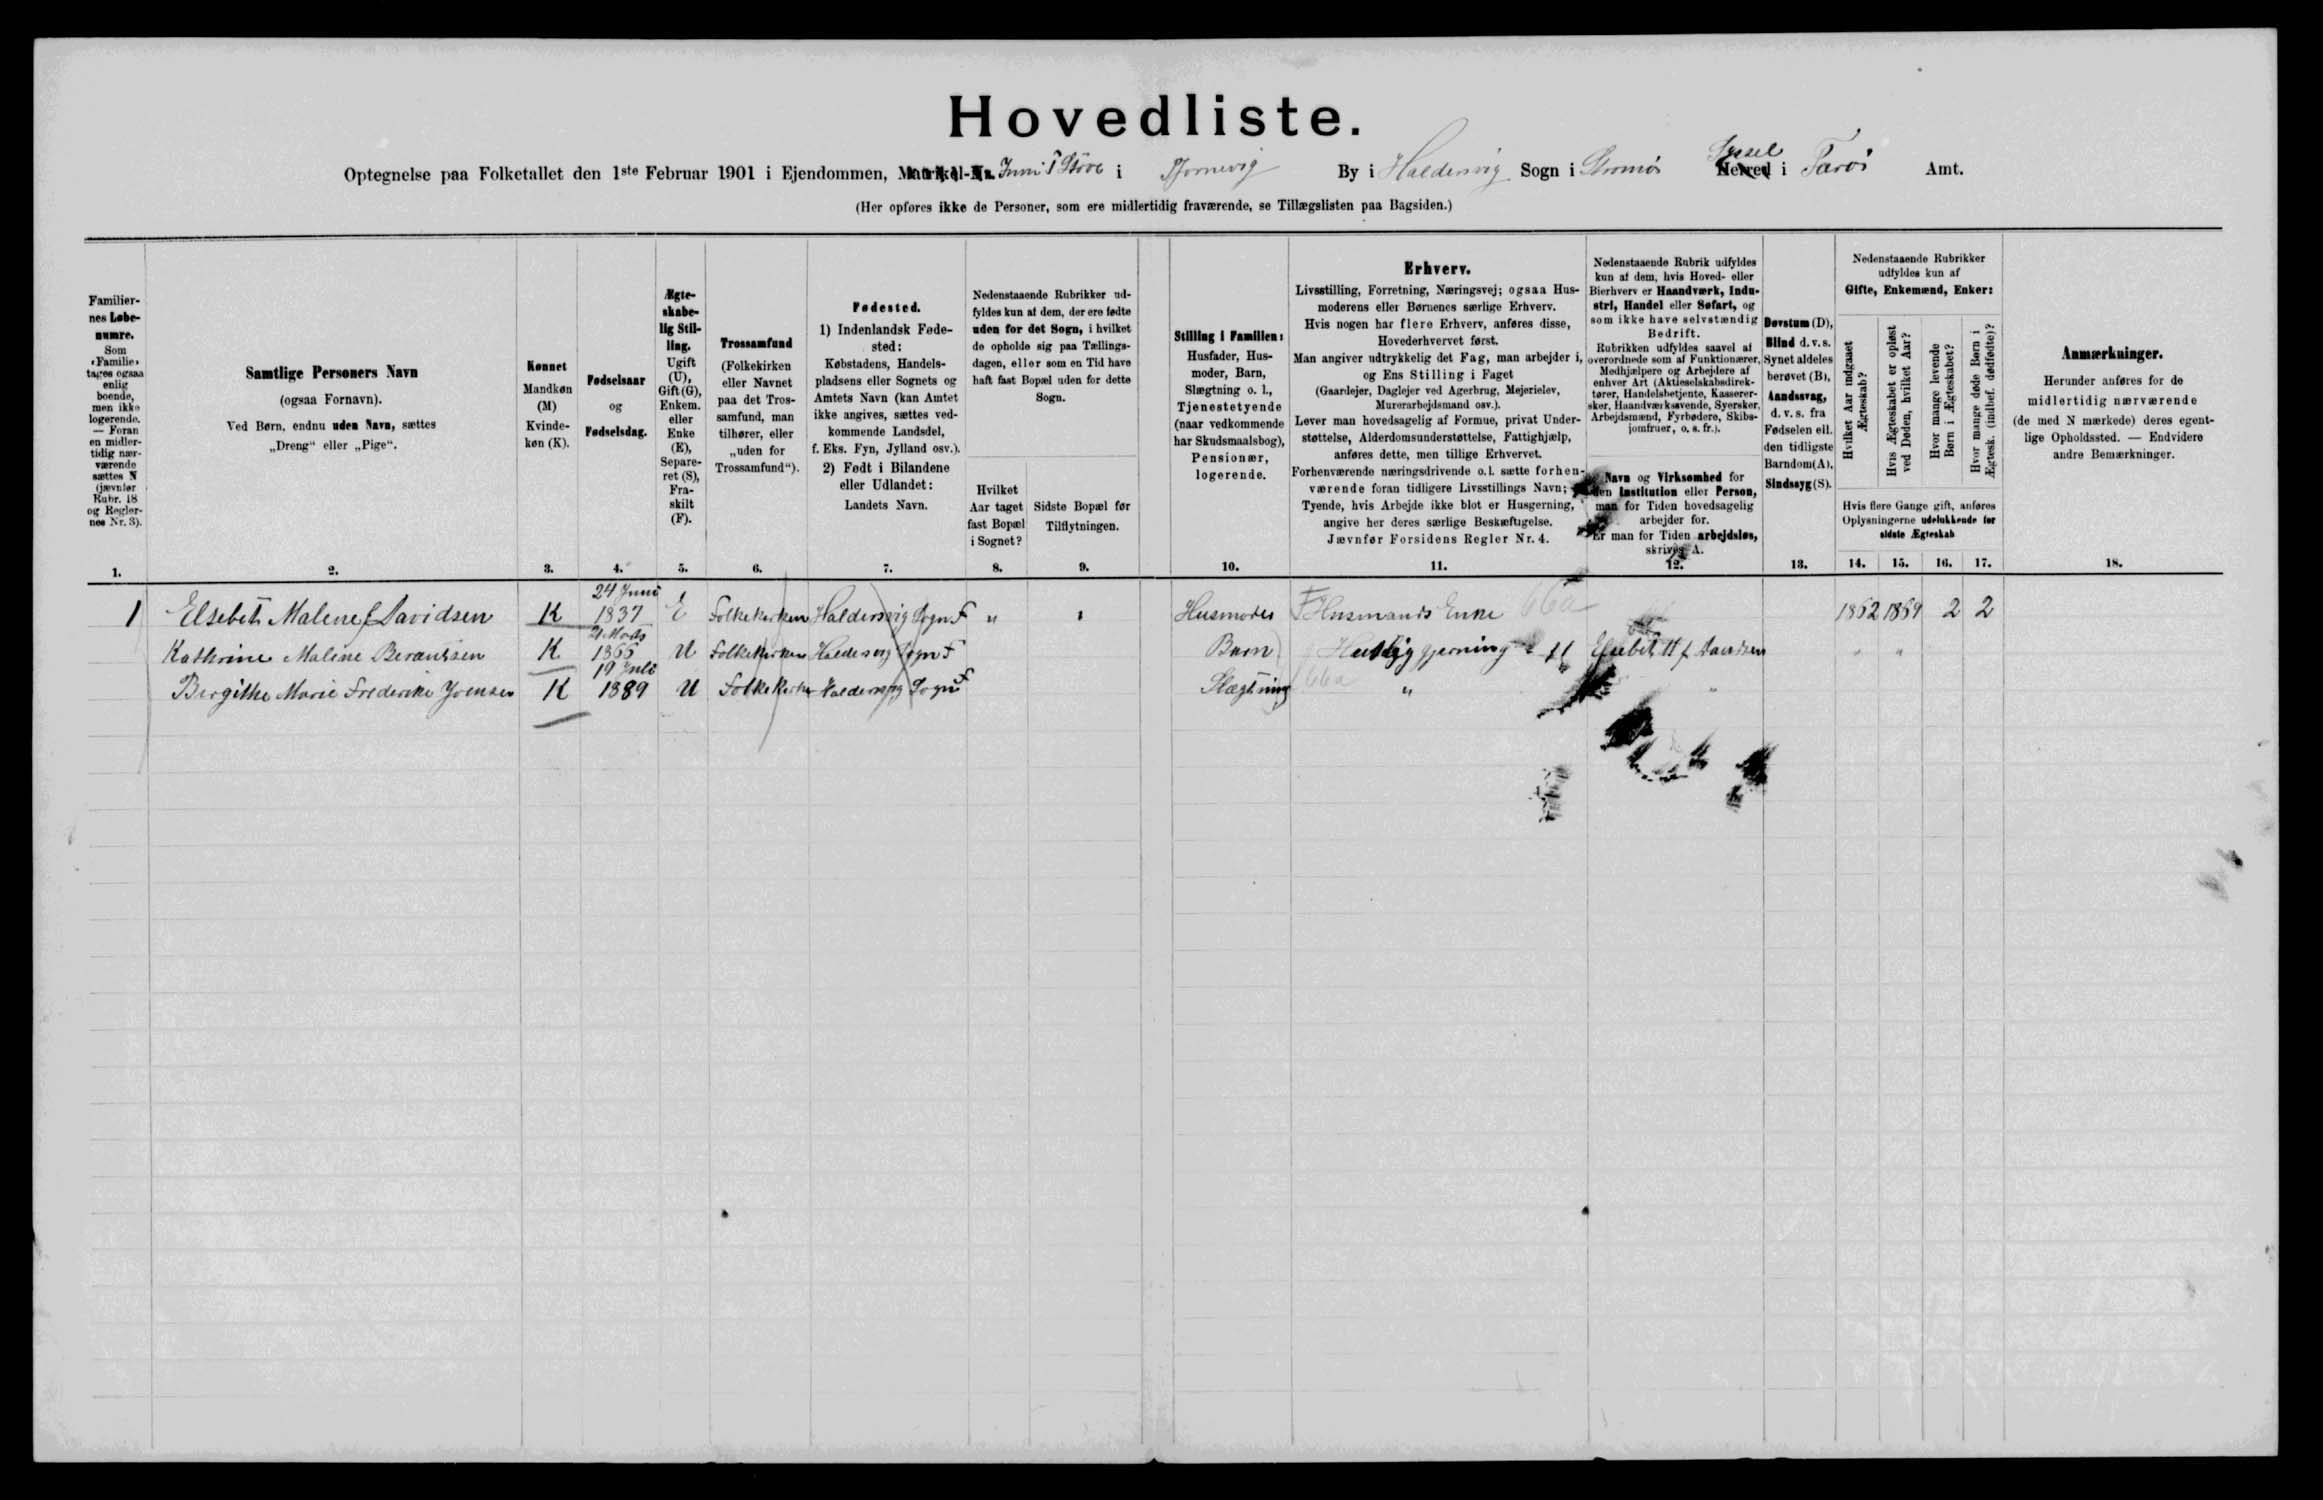 Hovedliste.
Optegnelse paa Folketallet den 1ste Februar 1901 i Ejendommen, Matrikel-Nr. Inni i Stove i Tjornevig By i Haldersvig Sogn i Strømø Syssel Herred i Færø Amt.
(Her opføres ikke de Personer, som ere midlertidig fraværende, se Tillægslisten paa Bagsiden.)
Familier-
nes Løbe-
numre.
Som
«Familie»
tages ogsaa
enlig
boende,
men ikke
logerende.
— Foran
en midler-
tidig nær-
værende
sættes N
(jævnfør
Rubr. 18
og Regler-
nes Nr. 3).
1.
Samtlige Personers Navn
(ogsaa Fornavn).
Ved Børn, endnu uden Navn, sættes
„Dreng“ eller „Pige“.
2.
Kønnet
Mandkøn
(M)
Kvinde-
køn (K).
3.
Fødselsaar
og
Fødselsdag.
4.
Ægte-
skabe-
lig Stil-
ling.
Ugift
(U),
Gift (G),
Enkem.
eller
Enke
(E),
Separe-
ret (S),
Fra-
skilt
(F).
5.
Trossamfund
(Folkekirken
eller Navnet
paa det Tros-
samfund, man
tilhører, eller
„uden for
Trossamfund“).
6.
Fødested.
1) Indenlandsk Føde-
sted:
Købstadens, Handels-
pladsens eller Sognets og
Amtets Navn (kan Amtet
ikke angives, sættes ved-
kommende Landsdel,
f. Eks. Fyn, Jylland osv.).
2) Født i Bilandene
eller Udlandet:
Landets Navn.
7.
Nedenstaaende Rubrikker ud-
fyldes kun af dem, der ere fødte
uden for det Sogn, i hvilket
de opholde sig paa Tællings-
dagen, eller som en Tid have
haft fast Bopæl uden for dette
Sogn.
Hvilket
Aar taget
fast Bopæl
i Sognet?
8.
Sidste Bopæl før
Tilflytningen.
9.
Stilling i Familien:
Husfader, Hus-
moder, Barn,
Slægtning o. l.,
Tjenestetyende
(naar vedkommende
har Skudsmaalsbog),
Pensionær,
logerende.
10.
Erhverv.
Livsstilling, Forretning, Næringsvej; ogsaa Hus-
moderens eller Børnenes særlige Erhverv.
Hvis nogen har flere Erhverv, anføres disse,
Hovederhvervet først.
Man angiver udtrykkelig det Fag, man arbejder i,
og Ens Stilling i Faget
(Gaardejer, Daglejer ved Agerbrug, Mejerielev,
Murerarbejdsmand osv.).
Lever man hovedsagelig af Formue, privat Under-
støttelse, Alderdomsunderstøttelse, Fattighjælp,
anføres dette, men tillige Erhvervet.
Forhenværende næringsdrivende o. l. sætte forhen-
værende foran tidligere Livsstillings Navn;
Tyende, hvis Arbejde ikke blot er Husgerning,
angive her deres særlige Beskæftigelse.
Jævnfør Forsidens Regler Nr. 4.
11.
Nedenstaaende Rubrik udfyldes
kun af dem, hvis Hoved- eller
Bierhverv er Haandværk, Indu-
stri, Handel eller Søfart, og
som ikke have selvstændig
Bedrift.
Rubrikken udfyldes saavel af
overordnede som af Funktionærer,
Medhjælpere og Arbejdere af
enhver Art (Aktieselskabsdirek-
tører, Handelsbetjente, Kasserer-
sker, Haandværkssvende, Syersker,
Arbejdsmænd, Fyrbødere, Skibs-
jomfruer, o. s. fr.).
Navn og Virksomhed for
den Institution eller Person,
man for Tiden hovedsagelig
arbejder for.
Er man for Tiden arbejdsløs,
skrives A.
12.
Døvstum (D),
Blind d. v. s.
Synet aldeles
berøvet (B),
Aandssvag,
d. v. s. fra
Fødselen ell.
den tidligste
Barndom (A),
Sindssyg (S).
13.
Nedenstaaende Rubrikker
udfyldes kun af
Gifte, Enkemænd, Enker:
Hvilket Aar indgaaet
Ægteskab?
Hvis Ægteskabet er opløst
ved Døden, hvilket Aar?
Hvor mange levende
Børn i Ægteskabet?
Hvor mange døde Børn i
Ægtesk. (indbef. dødfødte)?
Hvis flere Gange gift, anføres
Oplysningerne udelukkende for
sidste Ægteskab
14. 15. 16. 17.
Anmærkninger.
Herunder anføres for de
midlertidig nærværende
(de med N mærkede) deres egent-
lige Opholdssted. — Endvidere
andre Bemærkninger.
18.
1 Elsebet Malene f Davidsen K 24 Juni 1837 E Folkekirken Haldersvig Sogn F " " Husmoder Husmands Enke 66a 1862 1869 2 2
Kathrine Malene Berentsen K 21 Marts 1865 U Folkekirken Haldersvig Sogn F Barn Huslig gjerning Elsebet M f Davidsen " "
Birgithe Marie Frederike Joensen K 19 Juli 1889 U Folkekirken Haldersvig Sogn F Slægtning 66a " "